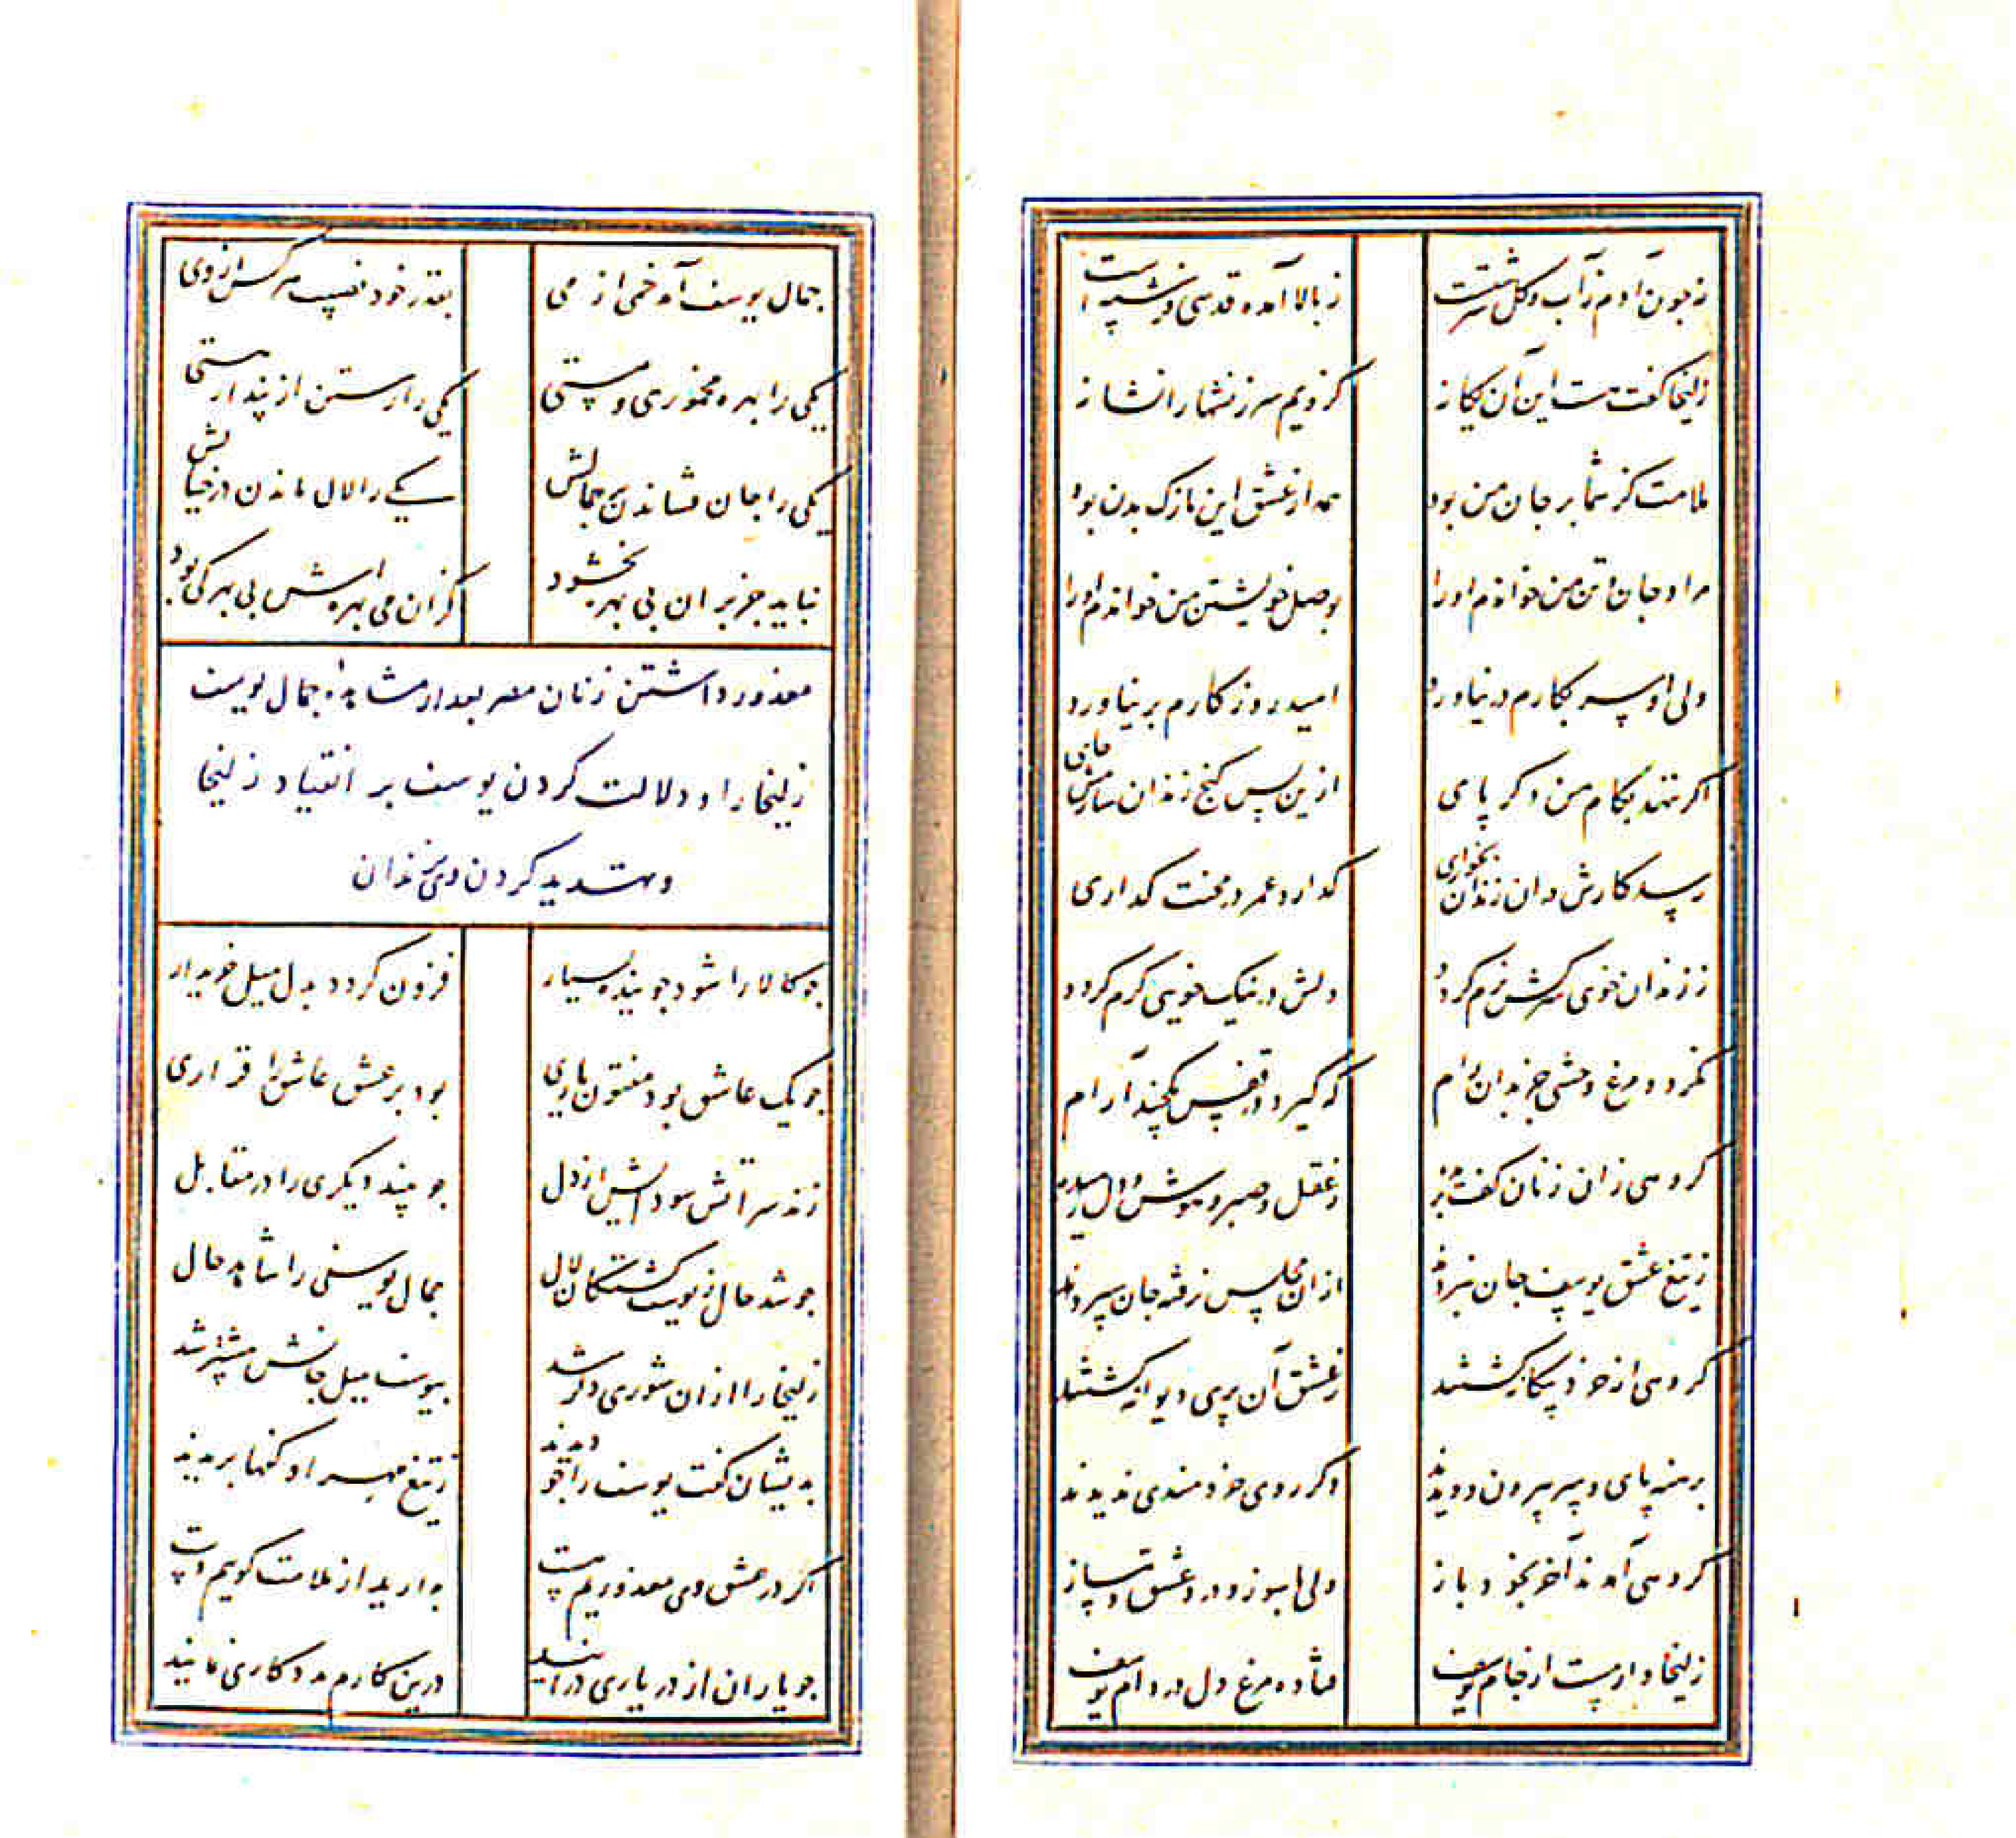 نه چون آدم ز آب و گل سرشتست ز بالا آمده قدسی فرشته است
زلیخا گفت هست این آن یگانه کزویم سرزنشها را نشانه
ملامت کز شما بر جان من بود همه از عشق این نازک بدن بود
مراد جان و تن من خواندم او را بوصل خویشتن من خواندم او را
ولی او سر بکارم در نیاورد امید روزگارم بر نیاورد
اگر ننهد بکام من دگر پای ازین پس کنج زندان سازمش جای
رسد کارش در آن زندان بخواری گذارد عمر در محنت گذاری
ز زندان خوی سرکش نرم گردد دلش در نیک خویی گرم گردد
نگردد مرغ وحشی جز بدان رام که گیرد در قفس یکچند آرام
گروهی زان زنان کف بریده ز عقل و صبر و هوش و دل رمیده
ز تیغ عشق یوسف جان نبردند از آن مجلس نرفته جان سپردند
گروهی از خرد بیگانه گشتند ز عشق آن پری دیوانه گشتند
برهنه پای و سر بیرون دویدند دگر روی خردمندی ندیدند
گروهی آمدند آخر بخود باز ولی با سوز و درد عشق دمساز
زلیخا وار مست از جام یوسف فتاده مرغ دل در دام یوسف
جمال یوسف آمد خمی از می بقدر خود نصیب هر کس از وی
یکی را بهره مخموری و مستی یکی را رستن از پندار هستی
یکی را جان فشاندن بر جمالش یکی را لال ماندن در خیالش
نباید جز بر آن بی بهره بخشود کز آن می بهره اش بی بهرگی بود
معذور داشتن زنان مصر بعد از مشاهده جمال یوسف
زلیخا را و دلالت کردن یوسف بر انقیاد زلیخا
و تهدید کردن وی بزندان
چو کالا را شود جوینده بسیار فزون گردد بدل میل خریدار
چو یک عاشق بود مفتون یاری بود بر عشق عاشق را قراری
زند سر آتش سودایش از دل چو بیند دیگری را در مقابل
چو شد حال ز یوسف گشتگان لال جمال یوسفی را شاهد حال
زلیخا را از آن شوری دگر شد بیوسف میل جانش بیشتر شد
بدیشان گفت یوسف را چو دیدند ز تیغ مهر او کفها بریدند
اگر در عشق وی معذوریم هست بدارید از ملامت گوییم دست
چو یاران از در یاری درآیید درین کارم مددکاری نمایید